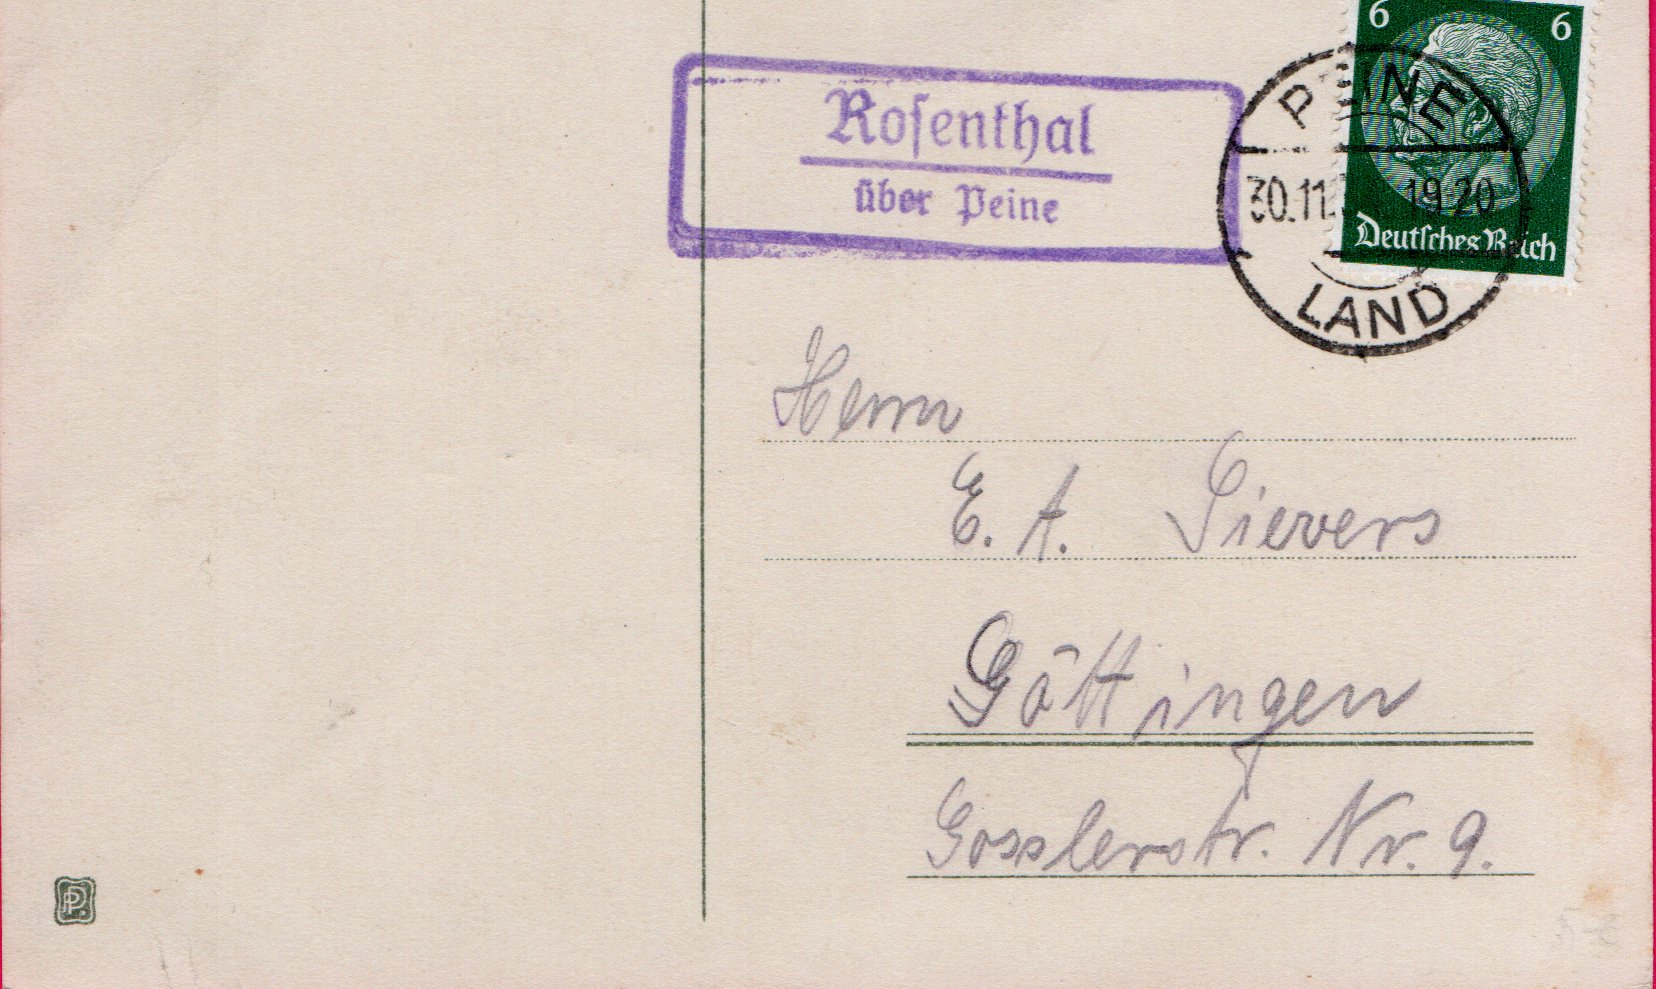 6 6
Deutsches Reich
PEINE
30.11. 19-20
LAND
Rosenthal
über Peine
Herrn
E. A. Sievers
Göttingen
Gosslerstr. Nr. 9.